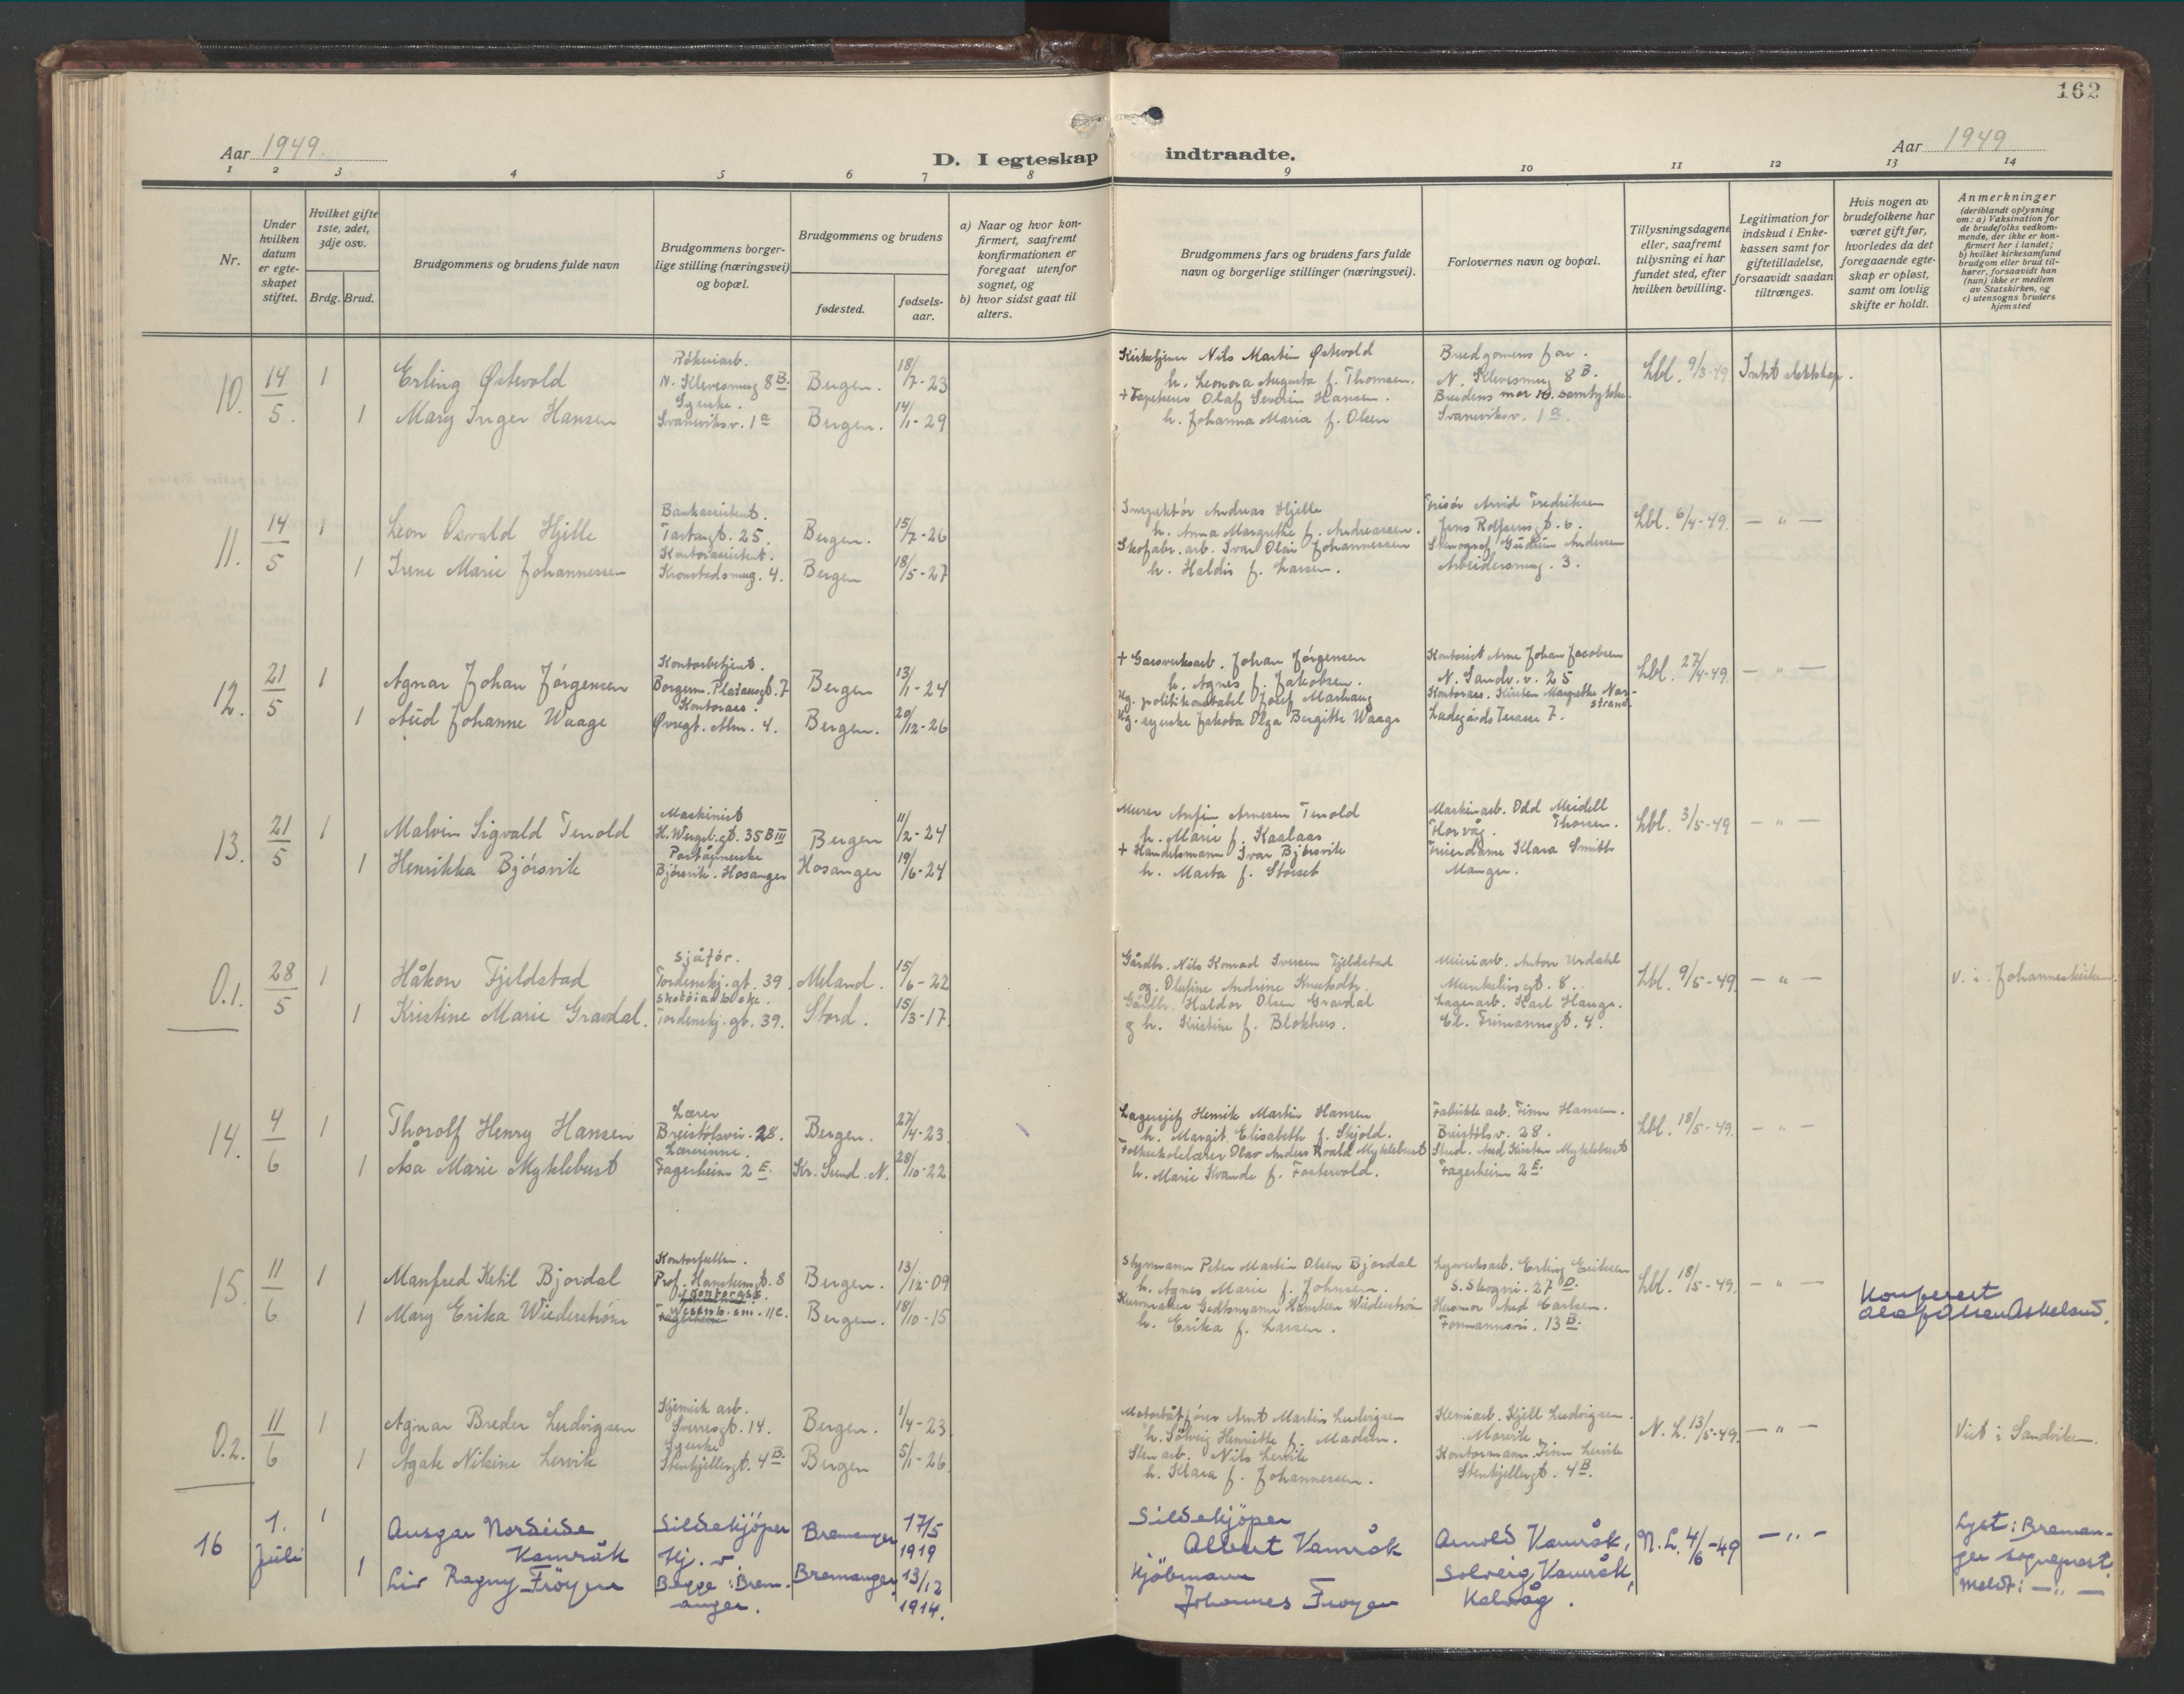 162
Aar 1949.
Aar 1949
D. I egteskap indtraadte.
1 2 3 4 5 6 7 8 9 10 11 12 13 14
Nr.
Under
hvilken
datum
er egte-
skapet
stiftet.
Hvilket gifte
1ste, 2det,
3dje osv.
Brdg. Brud.
Brudgommens og brudens fulde navn
Brudgommens borger-
lige stilling (næringsvei)
og bopæl.
Brudgommens og brudens
fødested.
fødsels-
aar.
a) Naar og hvor kon-
firmert, saafremt
konfirmationen er
foregaat utenfor
sognet, og
b) hvor sidst gaat til
alters.
Brudgommens fars og brudens fars fulde
navn og borgerlige stillinger (næringsvei).
Forlovernes navn og bopæl.
Tillysningsdagene
eller, saafremt
tillysning ei har
fundet sted, efter
hvilken bevilling.
Legitimation for
indskud i Enke-
kassen samt for
giftetilladelse,
forsaavidt saadan
tiltrænges.
Hvis nogen av
brudefolkene har
været gift før,
hvorledes da det
foregaaende egte-
skap er opløst,
samt om lovlig
skifte er holdt.
Anmerkninger
(deriblandt oplysning
om: a) Vaksination for
de brudefolks vedkom-
mende, der ikke er kon-
firmert her i landet;
b) hvilket kirkesamfund
brudgom eller brud til-
hører, forsaavidt han
(hun) ikke er medlem
av Statskirken, og
c) utensogns bruders
hjemsted
10. 14/5. 1 1
Erling Østevold
Mary Inger Hansen
N. Kleivesmug 8 B.
Syerske.
Svaneviksv. 1 a
Bergen. 18/7-23
Bergen. 14/1-29
Kirketjener Nils Martin Østevold
h. Leonora Augusta f. Thomsen.
+ Tapetserer Olaf Severin Hansen.
h. Johanna Maria f. Olsen
Brudgomens far.
N. Kleivesmug 8 B.
Brudens mor samtykke.
Svaneviksv. 1 a.
Lbl. 9/3-49
11. 14/5 1 1
Leon Osvald Hjelle
Irene Marie Johannessen
Bankassistent.
25.
Kontorassistent.
Kronstadsmug. 4.
Bergen. 15/7-26
Bergen 18/5-27
Inspektør Andreas Hjelle
h. Anna Margrethe f. Andreassen.
Skofabr. arb. Ivar Olai Johannessen
h. Haldis f. Larsen.
Frisør Arvid Fredriksen
Jens Rolfsensgt. 6.
Stenograf Gudrun Andersen
Arbeidersmug. 3.
Lbl. 6/4-49. — " —
12. 21/5 1 1
Agnar Johan Jørgensen
Aud Johanne Waage
Kontorbetjent.
Borgerm. Platousgt. 7
Kontorass.
Øvregt. Alm. 4.
Bergen 13/1-24
Bergen. 20/12-26
+ Gassverksarb. Johan Jørgensen
h. Agnes f. Jakobsen.
Ug. politikonstabel Josef Marhaug
Ug. syerske Jakoba Olga Bergitte Waage
Kontorist Arne Johan Jacobsen
N. Sandv. v. 25
Kontorass. Kirsten Margrethe Nor-
strand.
Ladegårds Terasse 7.
Lbl. 27/4-49. — " —
13. 21/5 1 1
Malvin Sigvald Tenold
Henrikka Bjørsvik
Maskinist
H. Wergel. gt. 35 B III
Poståpnerske
Bjørsvik. Hosanger
Bergen 11/2-24
Hosanger 19/6-24
Murer Anfin Arnesen Tenold
h. Marie f. Kaalaas
+ Handelsmann Ivar Bjørsvik
h. Marta f. Storset
Maskinarb. Odd Meidell
Horvåg. Thorsen.
Frierdame Klara Smith
Manger.
Lbl. 3/5-49 — " —
O.1. 28/5 1 1
Håkon Fjeldstad
Kristine Marie Gravdal.
Sjåfør.
Tordenskj. gt. 39
Tordenskj. gt. 39.
Meland. 15/6-22
Stord. 15/3-17
Gårdbr. Nils Konrad Iversen Fjeldstad
og. Olufine Andrine Knutsdtr.
Gårdbr. Haldor Olsen Gravdal
og h. Kristine f. Blokhus.
Meieriarb. Anton Urdahl
Munkelivsgt. 8.
Lagerarb. Karl Hauge.
Cl. Frimannsgt. 4.
Lbl. 9/5-49. — " —
V. i. Johanneskirken.
14. 4/6 1 1
Thorolf Henry Hansen
Åsa Marie Myklebust
Lærer
Breistølsvei. 28.
Lærerinne.
Fagerheim 2 E.
Bergen. 27/4-23.
Kr. Sund. N. 28/10-22
Lagersjef Henrik Martin Hansen
h. Margit Elisabeth f. Skjold.
Folkeskolelærer Olav Anders Roald Myklebust
h. Marie Kvande f. Fostervold.
Fabrikk arb. Finn Hansen.
Breistølsv. 28.
Stud. Aud Kirsten Myklebust
Fagerheim 2 E.
Lbl. 18/5-49. — " —
15. 11/6 1 1
Manfred Ketil Bjordal
Mary Erika Wiederstrøm
Kontorfullm.
Prof. Hansteensgt. 8
Kontorass.
Bergen. 13/12-09
Bergen. 18/10-15
Styrmann Peter Martin Olsen Bjordal
h. Agnes Marie f. Johnsen.
h. Erika f. Larsen.
Lysverksarb. Erling Eriksen
S. Skogvei. 27 D.
Husmor Aud Carlsen.
Formannsvei. 13 B.
Lbl. 18/5-49. — " —
Konferert
Olaf Olsen Askeland.
O.2. 11/6 1 1
Agnar Breder Ludvigsen
Agate Nilsine Lervik
Kjemisk arb.
Sverresgt. 14.
Syerske
Stenkjellergt. 4 B.
Bergen. 1/4-23.
Bergen 5/1-26
Motorbåtfører Arnt Martin Ludvigsen
h. Solveig Henriette f. Madsen.
Sten arb. Nils Lervik
h. Klara f. Johannessen.
Kemiarb. Kjell Ludvigsen.
Kontormann Finn Lervik
Stenkjellergt. 4 B.
N. L. 13/5-49. — " —
Viet i Sandviken.
16 1. Juli 1 1
Ansgar Nordeide
Kamråk
Liv Ragny Frøyen
Sildekjøper
Hj. v.
Begge: Brem-
anger.
Bremanger 17/5 1919
Bremanger 13/12 1914.
Sildekjøper
Albert Kamråk
Kjøbmann
Johannes Frøyen
Arnold Kamråk,
Solveig Kamråk,
Kalvåg.
N. L. 4/6-49 — " —
Lyst: Breman-
ger sogneprest.
Meldt: — " —